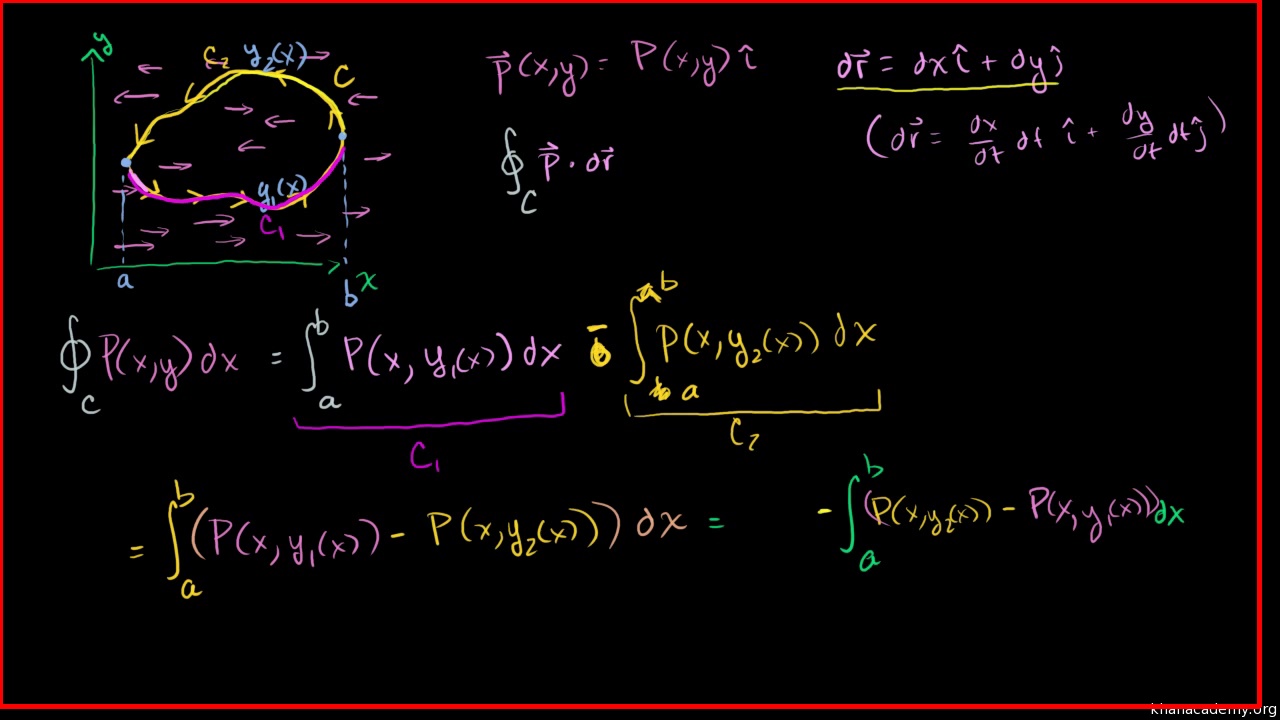 y
C₂ y₂(x)
C
y₁(x)
C₁
a
b
x
p⃗(x,y) = P(x,y) î
dr⃗ = dx î + dy ĵ
(dr⃗ = dx/dt dt î + dy/dt dt ĵ)
∮_C p⃗ · dr⃗
∮_C P(x,y) dx = ∫_a^b P(x, y₁(x)) dx - ∫_a^b P(x, y₂(x)) dx
C₁ C₂
= ∫_a^b (P(x, y₁(x)) - P(x, y₂(x))) dx = - ∫_a^b (P(x, y₂(x)) - P(x, y₁(x))) dx
khanacademy.org